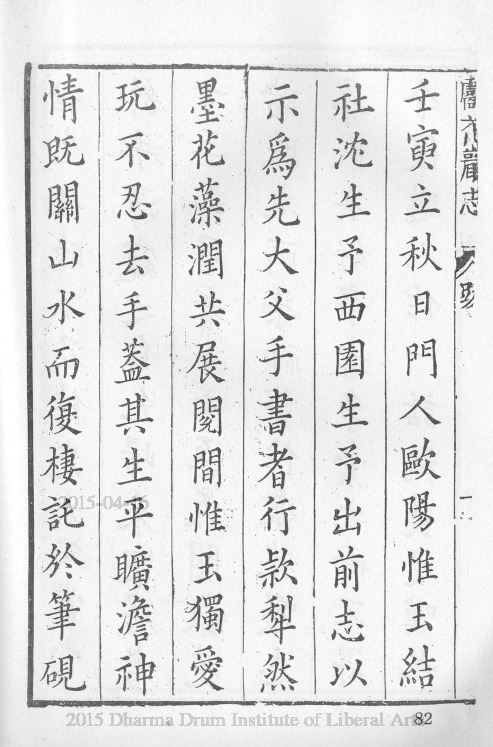 獻花巖志
跋
一
壬寅立秋日門人歐陽惟玉結
社沈生予西園生予出前志以
示爲先大父手書者行款犁然
墨花藻潤共展閱間惟玉獨愛
玩不忍去手蓋其生平曠澹神
情既關山水而復棲託於筆硯
2015-04-16
2015 Dharma Drum Institute of Liberal Arts
82